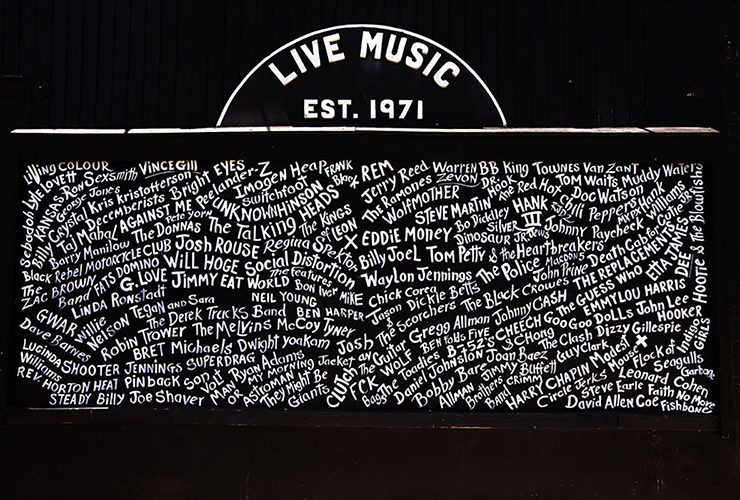 LIVE MUSIC
EST. 1971
COLOUR VINCE GILL EYES Z Imogen Heap FRANK Black REM Jerry Reed Warren ZEVON BB King Townes Van Zant Tom Waits Muddy Waters
Lyle Lovett Ron Sexsmith Kris Kristofferson Bright Peelander Switchfoot The Ramones Dr. Hook The Red Hot Chili Peppers Doc Watson
KANSAS George Jones Decemberists AGAINST ME Pete Yorn UNKNOWN HINSON The Kings of LEON Wolfmother STEVE MARTIN HANK III Johnny Paycheck Williams
Billy Crystal Taj Mahal The DONNAS The Talking HEADS X EDDIE MONEY Bo Diddley Silver JEWS Death Cab for Cutie
Barry Manilow Josh ROUSE Regina Spektor Billy Joel Tom Petty & the Heartbreakers Dinosaur JR. THE REPLACEMENTS ETTA JAMES
Black Rebel MOTORCYCLE CLUB Will HOGE Social Distortion The features Waylon Jennings The Police John Prine THE GUESS WHO HOOTIE & The Blowfish
The ZAC BROWN Band FATS DOMINO G. LOVE JIMMY EAT WORLD BON Iver MIKE Chick Corea The Black Crowes EMMYLOU HARRIS
Linda Ronstadt NEIL YOUNG Jason & the Scorchers Dickie Betts Johnny CASH Goo Goo DOLLS John Lee HOOKER
GWAR Willie NELSON TEGAN and SARA The Derek Trucks Band BEN HARPER Gregg Allman CHEECH & CHONG The Clash Dizzy Gillespie Indigo GIRLS
Dave Barnes Robin Trower The Melvins McCoy Tyner Josh BEN Folds FIVE B52S Guy Clark Modest Mouse Flock of Seagulls
LUCINDA Williams SHOOTER JENNINGS BRET Michaels Dwight Yoakam The Toadies Joan Baez HARRY CHAPIN Garbage
REV. HORTON HEAT PINBACK SUPERDRAG Ryan Adams MY MORNING Jacket Daniel Johnston Jimmy Buffett Circle Jerks Leonard Cohen
STEADY Billy Joe Shaver Son Volt MAN OR ASTROMAN They Might Be Giants CLUTCH Bobby Bare ALLMAN Brothers Band Steve Earle Faith No More
David Allen Coe Fishbone